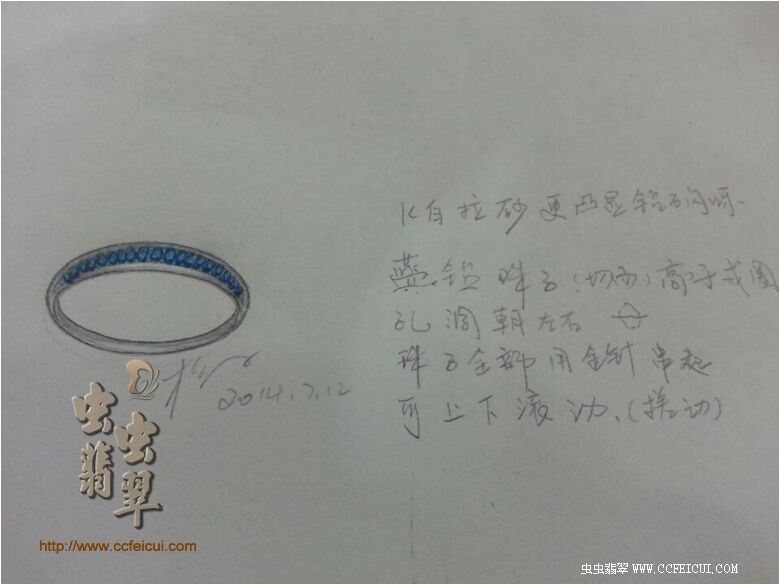 K白拉砂更凸显钻石闪
蓝钻珠子(切面)高于戒圈
孔洞朝左右
珠子全部用金针串起
可上下滚动、(搓动)
2014.7.12
虫虫翡翠
http://www.ccfeicui.com
虫虫翡翠 WWW.CCFEICUI.COM